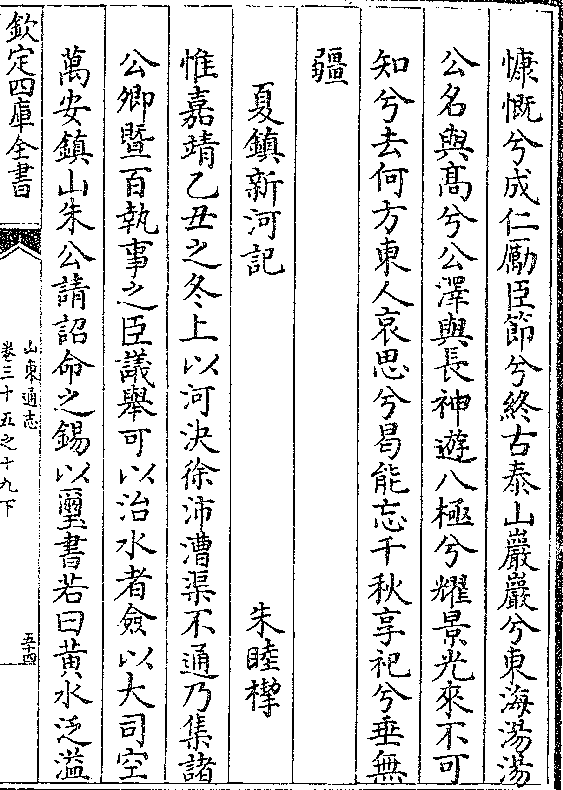 慷慨兮成仁勵臣節兮終古泰山巖巖兮東海湯湯
公名與髙兮公澤與長神遊八極兮耀景光來不可
知兮去何方東人哀思兮曷能忘千秋享祀兮垂無
疆
夏鎮新河記
朱睦㮮
惟嘉靖乙丑之冬上以河決徐沛漕渠不通乃集諸
公卿暨百執事之臣議舉可以治水者僉以大司空
萬安鎮山朱公請詔命之錫以璽書若曰黄水泛溢
欽定四庫全書
山東通志
卷三十五之十九下
五十四